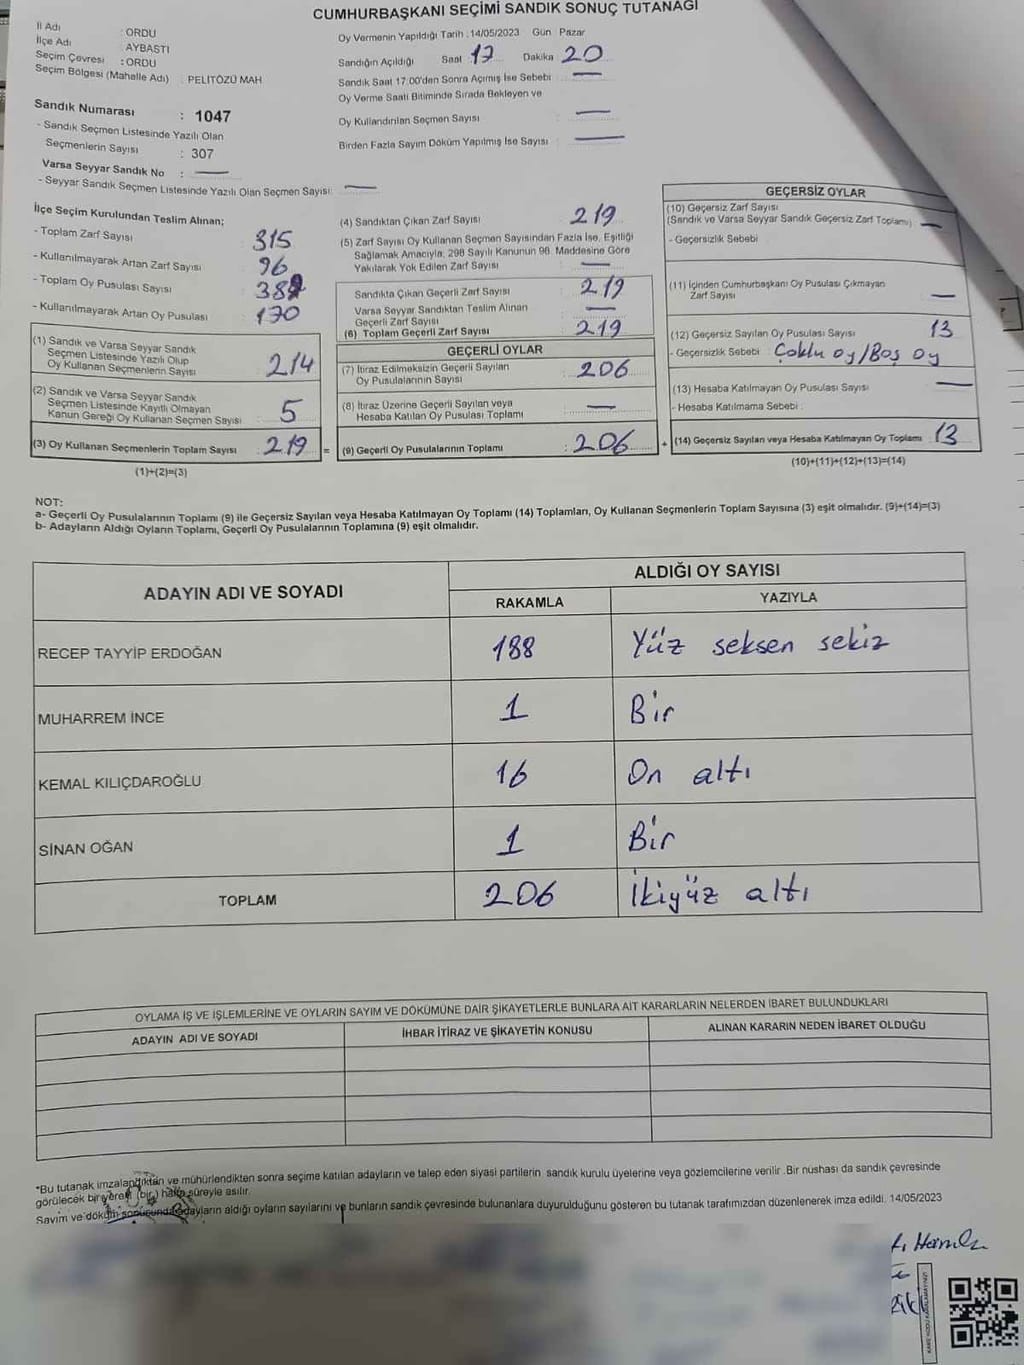 CUMHURBAŞKANI SEÇİMİ SANDIK SONUÇ TUTANAĞI
İl Adı : ORDU
İlçe Adı : AYBASTI
Seçim Çevresi : ORDU
Seçim Bölgesi (Mahalle Adı) : PELİTÖZÜ MAH
Sandık Numarası : 1047
- Sandık Seçmen Listesinde Yazılı Olan
Seçmenlerin Sayısı : 307
Varsa Seyyar Sandık No : —
- Seyyar Sandık Seçmen Listesinde Yazılı Olan Seçmen Sayısı: —
Oy Vermenin Yapıldığı Tarih : 14/05/2023 Gün : Pazar
Sandığın Açıldığı Saat 17 Dakika 20
Sandık Saat 17:00'den Sonra Açımış İse Sebebi : —
Oy Verme Saati Bitiminde Sırada Bekleyen ve
Oy Kullandırılan Seçmen Sayısı : —
Birden Fazla Sayım Döküm Yapılmış İse Sayısı : —
İlçe Seçim Kurulundan Teslim Alınan;
- Toplam Zarf Sayısı 315
- Kullanılmayarak Artan Zarf Sayısı 96
- Toplam Oy Pusulası Sayısı
- Kullanılmayarak Artan Oy Pusulası 170
(1) Sandık ve Varsa Seyyar Sandık
Seçmen Listesinde Yazılı Olup
Oy Kullanan Seçmenlerin Sayısı 214
(2) Sandık ve Varsa Seyyar Sandık
Seçmen Listesinde Kayıtlı Olmayan
Kanun Gereği Oy Kullanan Seçmen Sayısı : 5
(3) Oy Kullanan Seçmenlerin Toplam Sayısı : 219 =
(1)+(2)=(3)
(4) Sandıktan Çıkan Zarf Sayısı 219
(5) Zarf Sayısı Oy Kullanan Seçmen Sayısından Fazla İse, Eşitliği
Sağlamak Amacıyla; 298 Sayılı Kanunun 98. Maddesine Göre
Yakılarak Yok Edilen Zarf Sayısı : —
Sandıkta Çıkan Geçerli Zarf Sayısı : 219
Varsa Seyyar Sandıktan Teslim Alınan
Geçerli Zarf Sayısı : —
(6) Toplam Geçerli Zarf Sayısı : 219
GEÇERLİ OYLAR
(7) İtiraz Edilmeksizin Geçerli Sayılan
Oy Pusulalarının Sayısı : 206
(8) İtiraz Üzerine Geçerli Sayılan veya
Hesaba Katılan Oy Pusulası Toplamı : —
(9) Geçerli Oy Pusulalarının Toplamı : 206 +
GEÇERSİZ OYLAR
(10) Geçersiz Zarf Sayısı
(Sandık ve Varsa Seyyar Sandık Geçersiz Zarf Toplamı) —
- Geçersizlik Sebebi :
(11) İçinden Cumhurbaşkanı Oy Pusulası Çıkmayan
Zarf Sayısı —
(12) Geçersiz Sayılan Oy Pusulası Sayısı 13
- Geçersizlik Sebebi : Çoklu oy/Boş oy
(13) Hesaba Katılmayan Oy Pusulası Sayısı —
- Hesaba Katılmama Sebebi :
(14) Geçersiz Sayılan veya Hesaba Katılmayan Oy Toplamı : 13
(10)+(11)+(12)+(13)=(14)
NOT:
a- Geçerli Oy Pusulalarının Toplamı (9) ile Geçersiz Sayılan veya Hesaba Katılmayan Oy Toplamı (14) Toplamları, Oy Kullanan Seçmenlerin Toplam Sayısına (3) eşit olmalıdır. (9)+(14)=(3)
b- Adayların Aldığı Oyların Toplamı, Geçerli Oy Pusulalarının Toplamına (9) eşit olmalıdır.
ADAYIN ADI VE SOYADI ALDIĞI OY SAYISI
RAKAMLA YAZIYLA
RECEP TAYYİP ERDOĞAN 188 Yüz seksen sekiz
MUHARREM İNCE 1 Bir
KEMAL KILIÇDAROĞLU 16 On altı
SİNAN OĞAN 1 Bir
TOPLAM 206 İkiyüz altı
OYLAMA İŞ VE İŞLEMLERİNE VE OYLARIN SAYIM VE DÖKÜMÜNE DAİR ŞİKAYETLERLE BUNLARA AİT KARARLARIN NELERDEN İBARET BULUNDUKLARI
ADAYIN ADI VE SOYADI İHBAR İTİRAZ VE ŞİKAYETİN KONUSU ALINAN KARARIN NEDEN İBARET OLDUĞU
*Bu tutanak imzalandıktan ve mühürlendikten sonra seçime katılan adayların ve talep eden siyasi partilerin sandık kurulu üyelerine veya gözlemcilerine verilir .Bir nüshası da sandık çevresinde
görülecek bir yere (bir) hafta süreyle asılır.
Sayım ve döküm sonucunda adayların aldığı oyların sayılarını ve bunların sandık çevresinde bulunanlara duyurulduğunu gösteren bu tutanak tarafımızdan düzenlenerek imza edildi. 14/05/2023